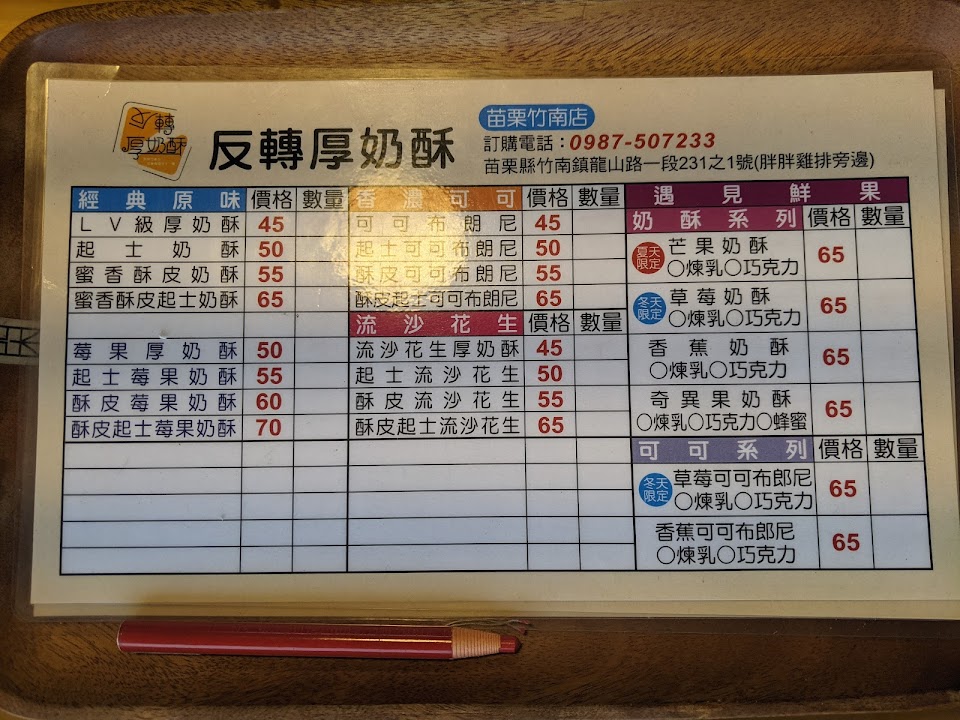 轉
厚奶酥
反轉厚奶酥
苗栗竹南店
訂購電話：0987-507233
苗栗縣竹南鎮龍山路一段231之1號(胖胖雞排旁邊)
經典原味 價格 數量
LV級厚奶酥 45
起士奶酥 50
蜜香酥皮奶酥 55
蜜香酥皮起士奶酥 65
莓果厚奶酥 50
起士莓果奶酥 55
酥皮莓果奶酥 60
酥皮起士莓果奶酥 70
香濃可可 價格 數量
可可布朗尼 45
起士可可布朗尼 50
酥皮可可布朗尼 55
酥皮起士可可布朗尼 65
流沙花生 價格 數量
流沙花生厚奶酥 45
起士流沙花生 50
酥皮流沙花生 55
酥皮起士流沙花生 65
遇見鮮果
奶酥系列 價格 數量
夏天限定 芒果奶酥 65
○煉乳○巧克力
冬天限定 草莓奶酥 65
○煉乳○巧克力
香蕉奶酥 65
○煉乳○巧克力
奇異果奶酥 65
○煉乳○巧克力○蜂蜜
可可系列 價格 數量
冬天限定 草莓可可布郎尼 65
○煉乳○巧克力
香蕉可可布郎尼 65
○煉乳○巧克力